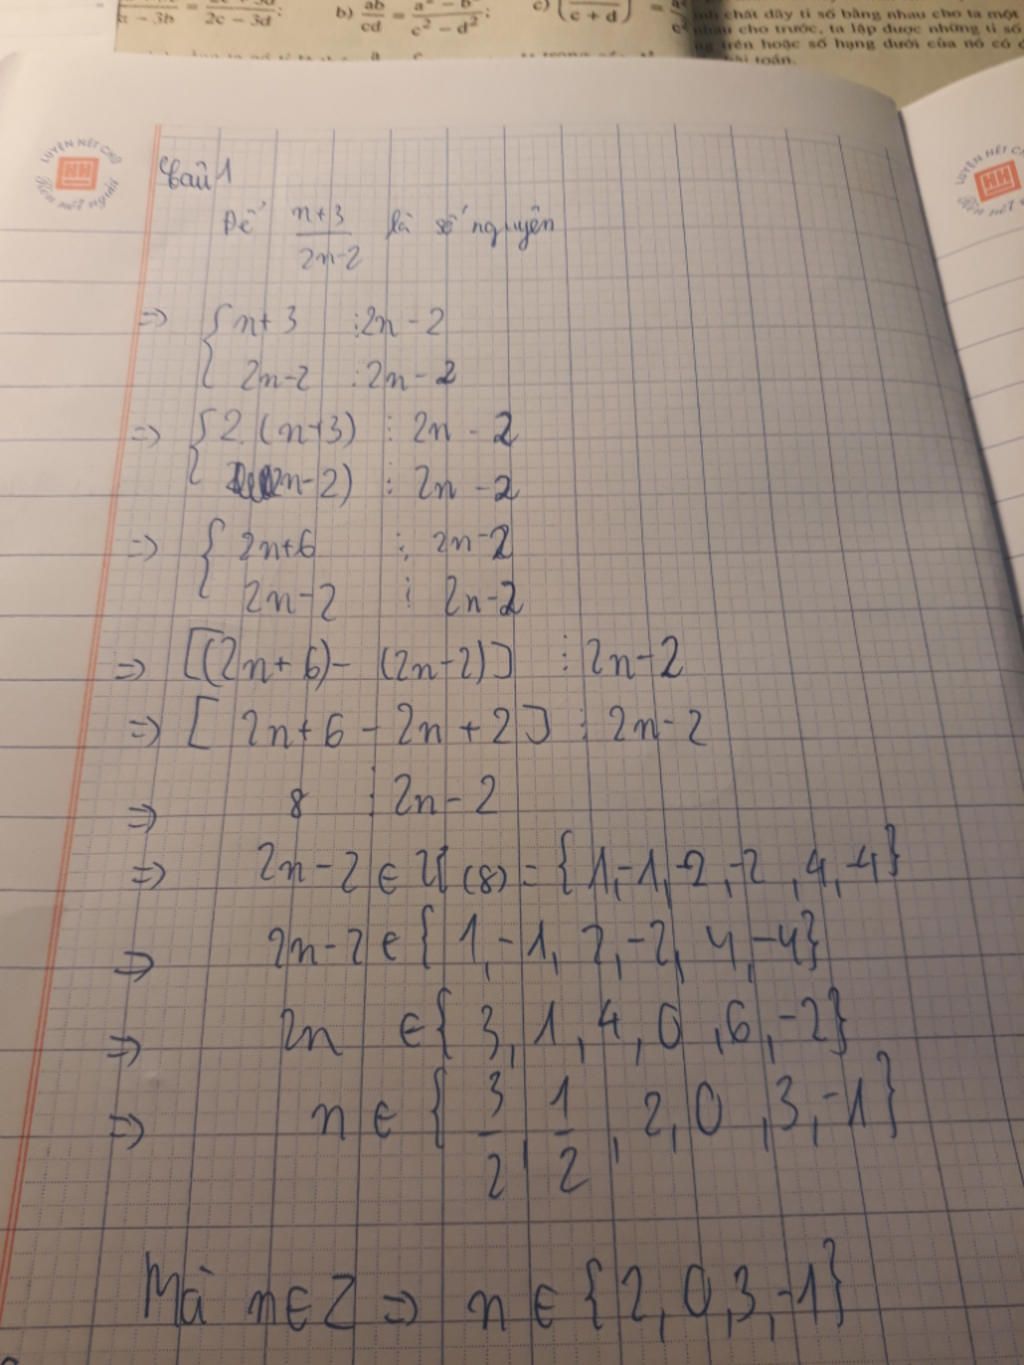 b) ab/cd = a² − b²/c² − d²;
2c − 3d;
c + d
nh chất dãy tỉ số bằng nhau cho ta một
cho trước, ta lập được những tỉ số
trên hoặc số hạng dưới của nó có
toán.
LUYỆN NÉT CHỮ
HH
Rèn nết người
LUYỆN NÉT
HH
Rèn nết
Câu 1
Để n+3/2n-2 là số nguyên
=> { n+3 ⋮ 2n-2
2n-2 ⋮ 2n-2
=> { 2.(n+3) ⋮ 2n-2
2n-2) ⋮ 2n-2
=> { 2n+6 ⋮ 2n-2
2n-2 ⋮ 2n-2
=> [(2n+6)-(2n-2)] ⋮ 2n-2
=> [2n+6-2n+2] ⋮ 2n-2
=> 8 ⋮ 2n-2
=> 2n-2 ∈ Ư(8) = {1,-1,-2,-2,4,-4}
=> 2n-2 ∈ {1,-1,2,-2,4,-4}
=> 2n ∈ {3,1,4,0,6,-2}
=> n ∈ {3/2, 1/2, 2,0,3,-1}
Mà n∈Z => n ∈ {2,0,3,-1}